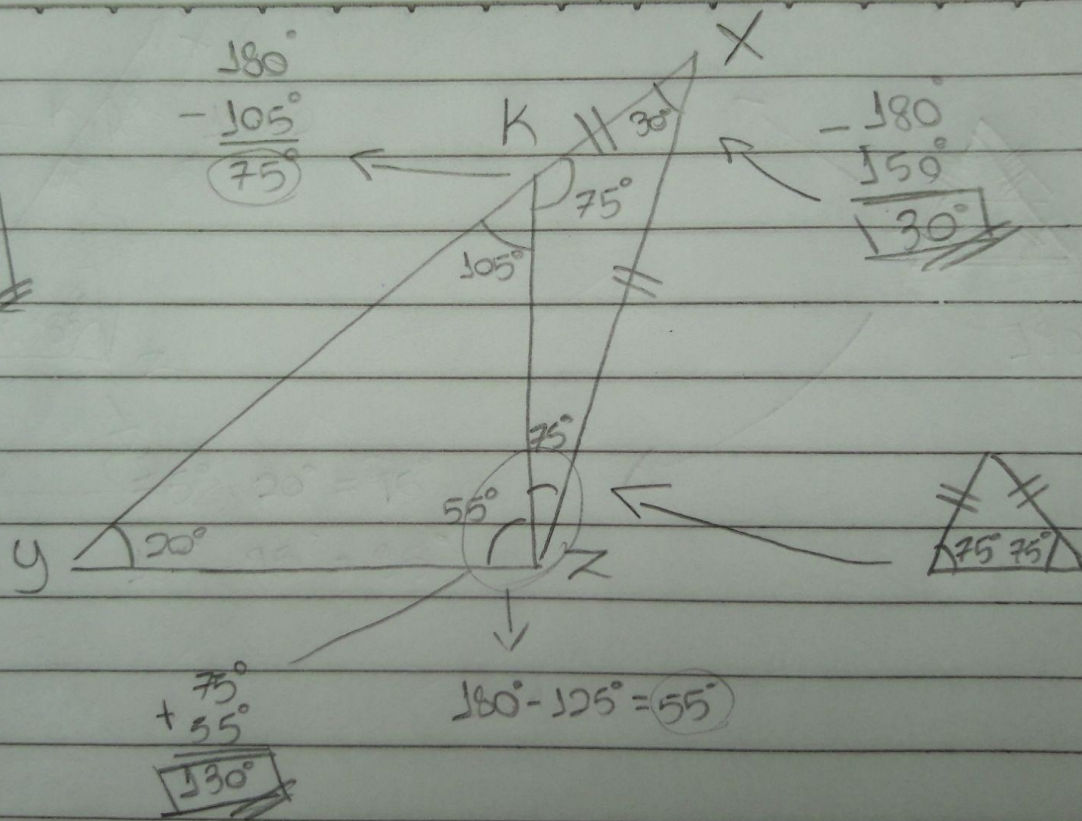 180°
- 105°
75°
X
K
30°
- 180°
150°
30°
75°
105°
75°
55°
y
20°
Z
75° 75°
75°
+ 55°
130°
180° - 125° = 55°